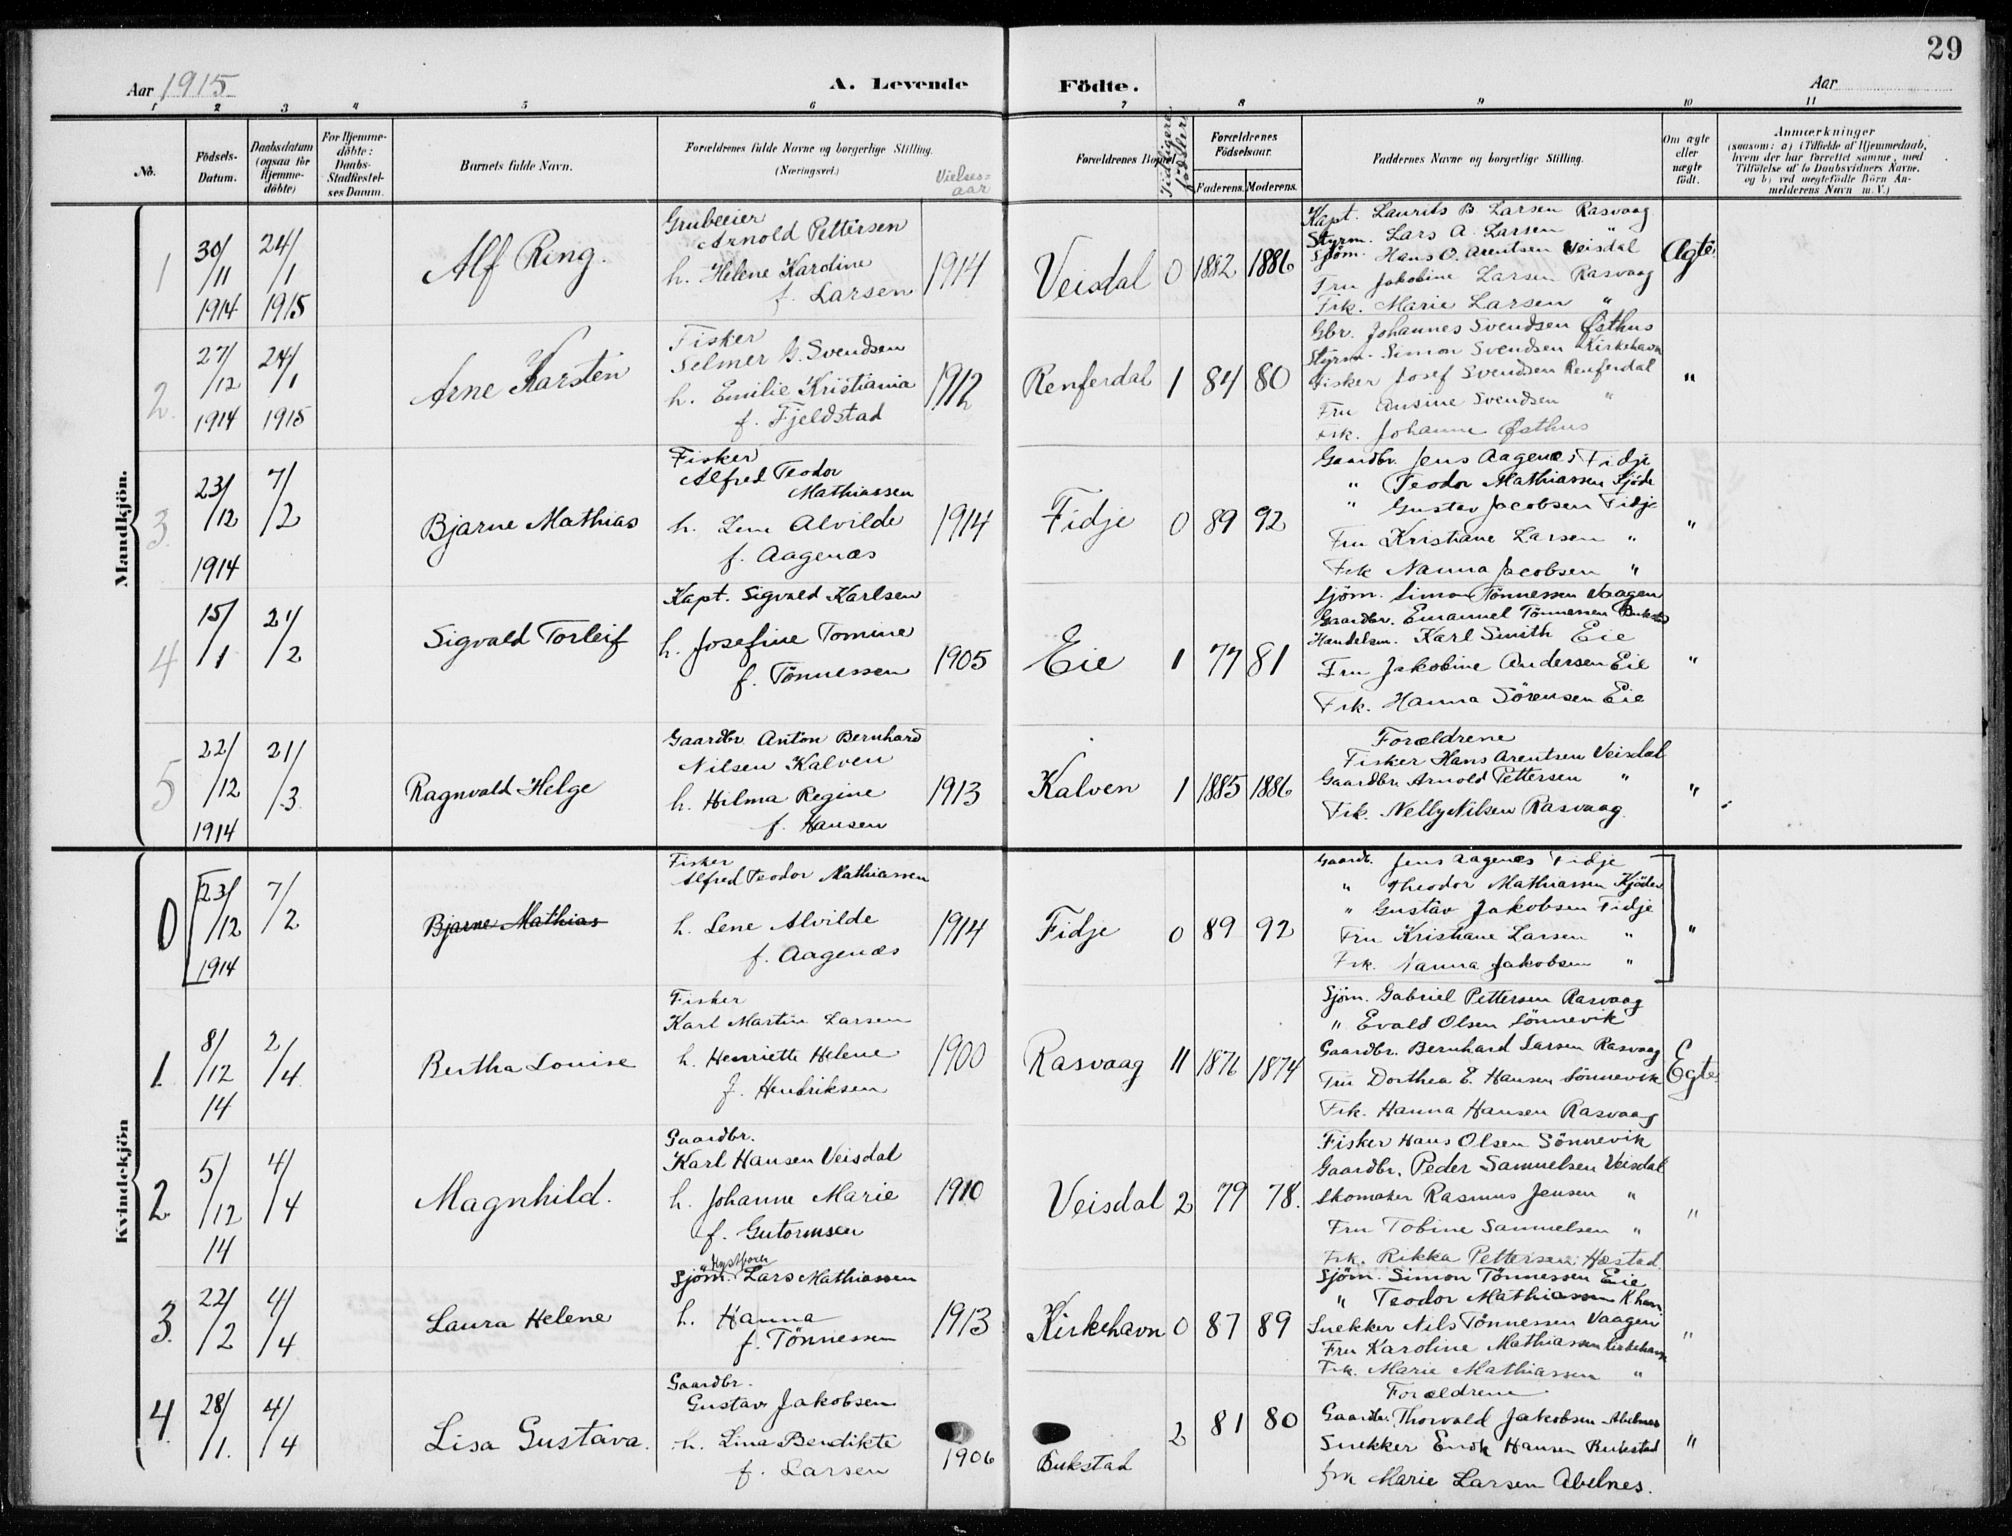 29
Aar 1915
A. Levende Födte.
Aar
1 2 3 4 5 6 7 8 9 10 11
No.
Födsels-Datum.
Daabsdatum (ogsaa for Hjemme-döbte)
For Hjemme-döbte: Daabs-Stadfæstel-ses Datum.
Barnets fulde Navn.
Forældrenes fulde Navne og borgerlige Stilling.
(Næringsvei.)
Vielses-aar
Forældrenes Bopæl
Tidligere födsler
Forældrenes Födselsaar.
Faderens. Moderens.
Faddernes Navne og borgerlige Stilling.
Om ægte eller uægte födt.
Anmærkninger
(saasom: a) i Tilfælde af Hjemmedaab, hvem der har forrettet samme, med Tilföielse af to Daabsvidners Navne. og b) ved uægtefödte Börn An-melderens Navn m. V.)
Mandkjön.
1
30/11 1914
24/1 1915
Alf Ring.
Grubeeier
Arnold Pettersen
h. Helene Kardine
f. Larsen
1914
Veisdal
0
1882
1886
Kapt. Laurits B. Larsen Rasvaag
Styrm. Lars A. Larsen "
Sjöm. Hans O. Arentsen Veisdal
Fru Jakobine Larsen Rasvaag
Frk. Marie Larsen "
Ægte
2.
27/12 1914
24/1 1915
Arne Karsten
Fisker
Selmer G. Svendsen
h. Emilie Kristiania
f. Fjeldstad
1912
Renferdal
1
84
80
Gbr. Johannes Svendsen Østhus
Styrm. Simon Svendsen Kirkehavn
Fisker Josef Svendsen Renferdal
Fru Ansine Svendsen "
Frk. Johanne Østhus
"
3.
23/12 1914
7/2
Bjarne Mathias
Fisker
Alfred Teodor
Mathiassen
h. Lene Alvilde
f. Aagenæs
1914
Fidje
0
89
92
Gaardbr. Jens Aagenæs Fidje
" Teodor Mathiassen
" Gustav Jacobsen Fidje
Fru Kristiane Larsen "
Frk Nanna Jacobsen "
"
4
15/1
21/2
Sigvald Torleif
Kapt. Sigvald Karlsen
h. Josefine Tomine
f. Tönnessen
1905
Eie
1
77
81
Sjöm. Simon Tönnessen Vaagen
Gaardbr. Emanuel Tönnessen
Handelsm. Karl Smith Eie
Fru Jakobine Andersen Eie
Frk. Hanna Sörensen Eie
"
5
22/12 1914
21/3.
Ragnvald Helge
Gaardbr Anton Bernhard
Nilsen Kalven
h. Hilma Regine
f. Hansen
1913
Kalven
1
1885
1886
Forældrene
Fisker Hans Arentsen Veisdal
Gaardbr. Arnold Pettersen "
Frk. Nelly Nilsen Rasvaag.
"
Kvindekjön
0
23/12 1914
7/2
Bjarne Mathias
Fisker
Alfred Teodor Mathiassen
h. Lene Alvilde
f. Aagenæs
1914
Fidje
0
89
92
Gaardb. Jens Aagenæs Fidje
" Theodor Mathiassen
" Gustav Jakobsen Fidje
Fru Kristiane Larsen "
Frk. Nanna Jakobsen "
"
1.
8/12 14
2/4
Bertha Louise
Fisker
Karl Martin Larsen
h. Henriette Helene
f. Hendriksen
1900
Rasvaag
11
1876
1874
Sjöm. Gabriel Pettersen Rasvaag
" Evald Olsen Sönnevik
Gaardbr. Bernhard Larsen Rasvaag
Fru Dorthea E. Hansen Sönnevik
Frk. Hanna Hansen Rasvaag
Egte
2.
5/12 14
4/4
Magnhild.
Gaardbr.
Karl Hansen Veisdal
h. Johanne Marie
f. Gutormsen
1910
Veisdal
2
79
78.
Fisker Hans Olsen Sönnevik
Gaardbr. Peder Samuelsen Veisdal
Skomaker Rasmus Jensen "
Fru Tobine Samuelsen "
Frk. Rikka Pettersen Hæstad
"
3.
22/2
4/4
Laura Helene
Sjöm. Lars Mathiassen
h. Hanna
f. Tönnessen
1913
Kirkehavn
0
87
89
Sjöm. Simon Tönnessen Eie
" Teodor Mathiassen K.havn
Snekker Nils Tönnessen Vaagen
Fru Karoline Mathiassen Kirkehavn
Frk. Marie Mathiassen "
"
4.
28/1.
4/4
Lisa Gustava.
Gaardbr.
Gustav Jakobsen
h. Lina Bendikte
f. Larsen
1906
Bukstad
2
81
80
Forældrene
Gaardbr. Thorvald Jakobsen Abelnes
Snekker Enok Hansen Bukstad
frk Marie Larsen Abelnes.
"